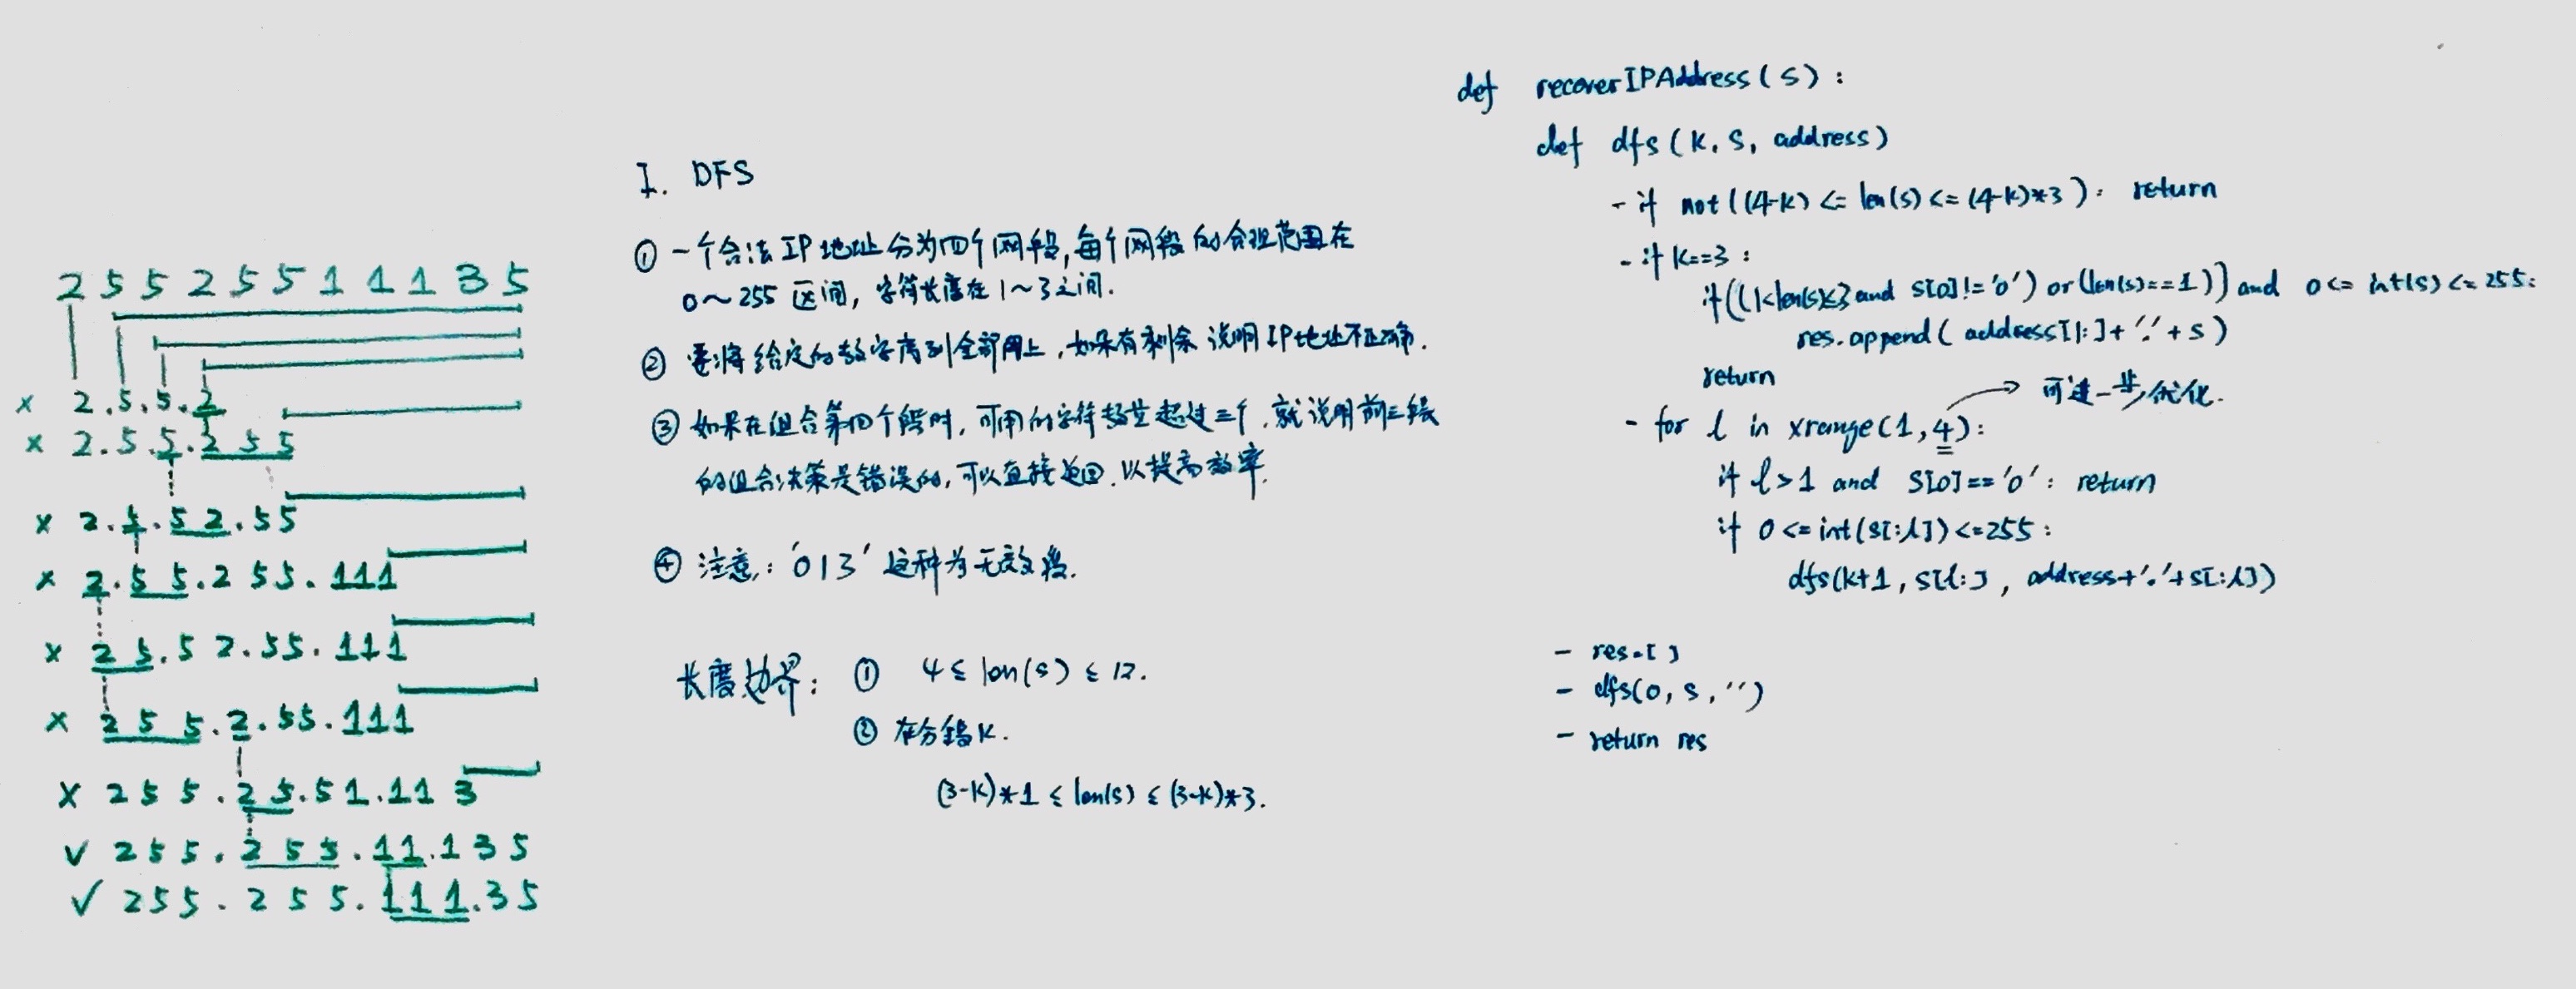 2 5 5 2 5 5 1 1 1 3 5
x 2.5.5.2
x 2.5.5.255
x 2.5.52.55
x 2.55.255.111
x 25.52.55.111
x 255.2.55.111
x 255.25.51.113
√ 255.255.11.135
√ 255.255.111.35
I. DFS
① 一个合法IP地址分为四个网段,每个网段的合理范围在
0~255 区间, 字符长度在1~3之间.
② 要将给定的数字用到全部网上,如果有剩余 说明IP地址不正确.
③ 如果在组合第四个段时, 可用的字符数量超过三个, 就说明前三段
的组合决策是错误的, 可以直接返回, 以提高效率.
④ 注意: '013' 这种为无效段.
长度边界: ① 4 ≤ len(s) ≤ 12.
② 在分错K.
(3-K)*1 ≤ len(s) ≤ (3-K)*3.
def recoverIPAddress(s):
def dfs(K, S, address)
- if not((4-K) <= len(s) <= (4-K)*3): return
- if K==3:
if((1<len(s)≤3 and S[0]!='0') or (len(s)==1)) and 0<= int(s) <= 255:
res.append( address[1:]+'.'+s)
return
可进一步优化.
- for l in xrange(1,4):
if l>1 and S[0]=='0': return
if 0<=int(s[:l])<=255:
dfs(K+1, S[l:], address+'.'+s[:l])
- res=[]
- dfs(0, s, '')
- return res